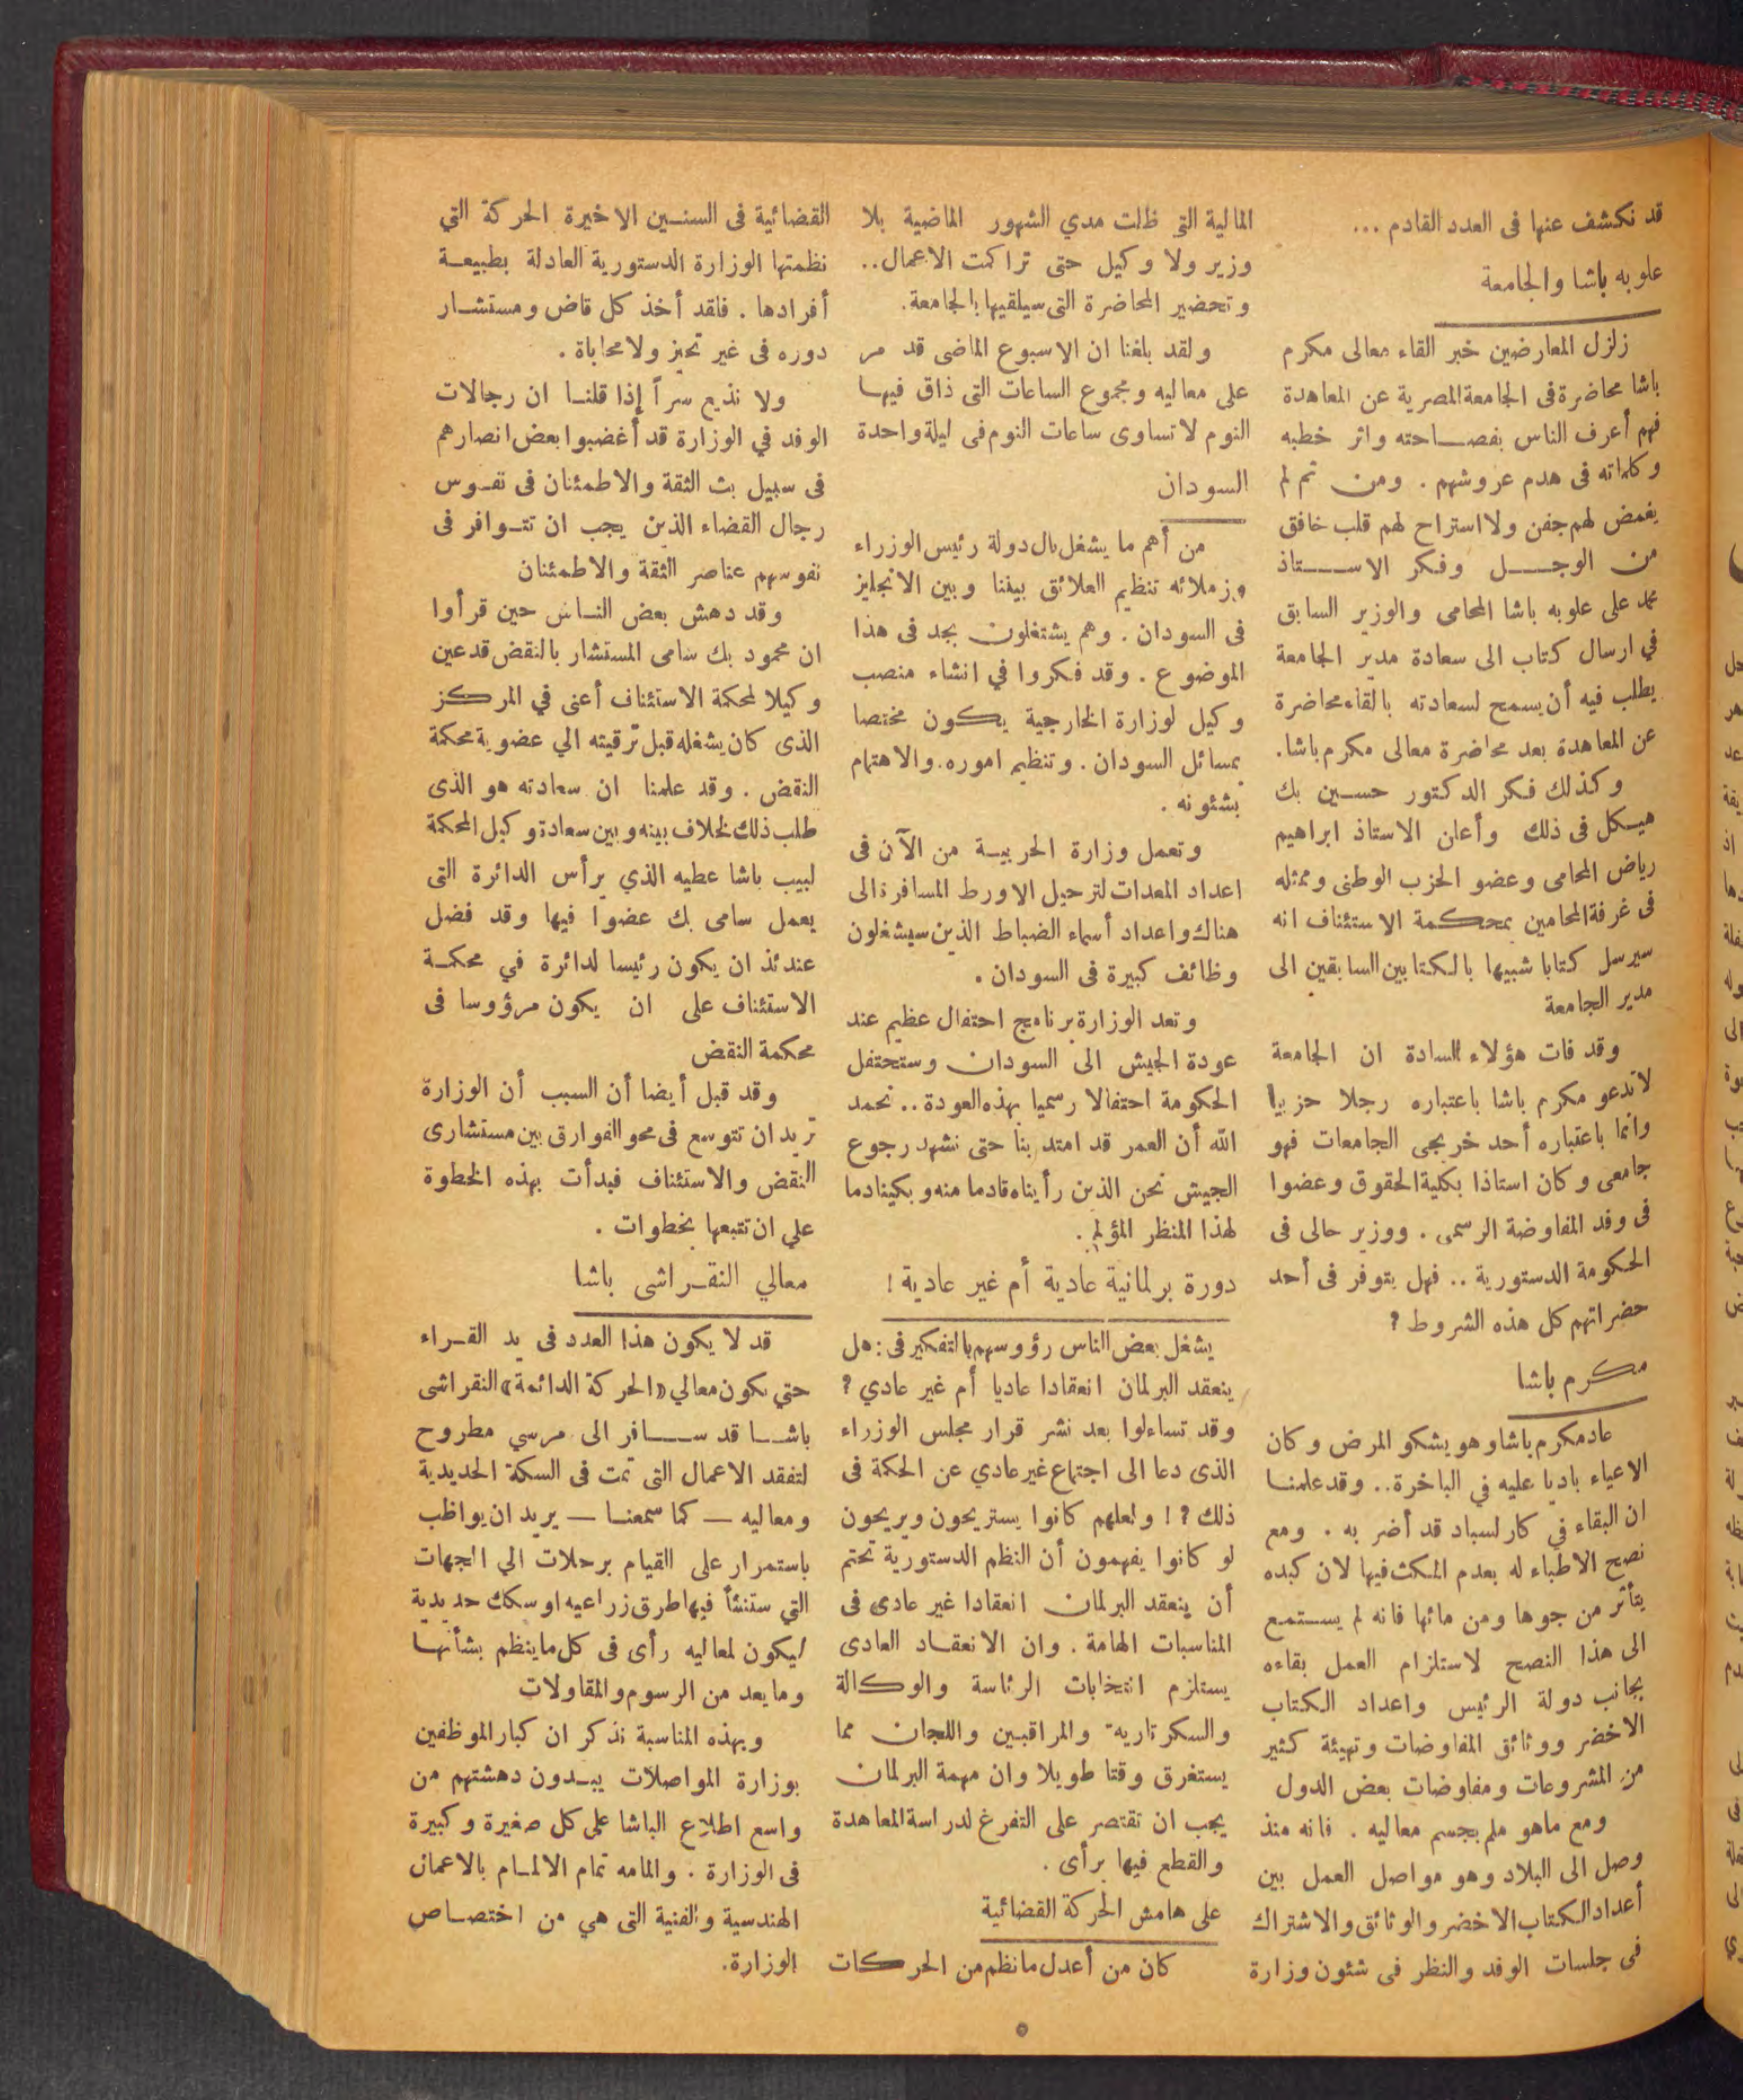 قد نكشف عنها فى العدد القادم ...
علوبه باشا والجامعة
زلزل المعارضين خبر القاء معالى مكرم
باشا محاضرة فى الجامعة المصرية عن المعاهدة
فهم أعرف الناس بفصاحته واثر خطبه
وكلماته فى هدم عروشهم . ومن ثم لم
يغمض لهم جفن ولا استراح لهم قلب خافق
من الوجل وفكر الاستاذ
محمد على علوبه باشا المحامى والوزير السابق
في ارسال كتاب الى سعادة مدير الجامعة
يطلب فيه أن يسمح لسعادته بالقاء محاضرة
عن المعاهدة بعد محاضرة معالى مكرم باشا.
وكذلك فكر الدكتور حسين بك
هيكل فى ذلك وأعلن الاستاذ ابراهيم
رياض المحامى وعضو الحزب الوطنى وممثله
فى غرفة المحامين بمحكمة الاستئناف انه
سيرسل كتابا شبيها بالكتابين السابقين الى
مدير الجامعة
وقد فات هؤلاء السادة ان الجامعة
لا تدعو مكرم باشا باعتباره رجلا حزبيا
وانما باعتباره أحد خريجى الجامعات فهو
جامعى وكان استاذا بكلية الحقوق وعضوا
فى وفد المفاوضة الرسمى . ووزير حالى فى
الحكومة الدستورية .. فهل يتوفر فى أحد
حضراتهم كل هذه الشروط ؟
مكرم باشا
عاد مكرم باشا وهو يشكو المرض وكان
الاعياء باديا عليه في الباخرة .. وقد علمنا
ان البقاء في كارلسباد قد أضر به . ومع
نصح الاطباء له بعدم المكث فيها لان كبده
يتأثر من جوها ومن مائها فانه لم يستمع
الى هذا النصح لاستلزام العمل بقاءه
بجانب دولة الرئيس واعداد الكتاب
الاخضر ووثائق المفاوضات وتهيئة كثير
من المشروعات ومفاوضات بعض الدول
ومع ماهو ملم بجسم معاليه . فانه منذ
وصل الى البلاد وهو مواصل العمل بين
أعداد الكتاب الاخضر والوثائق والاشتراك
فى جلسات الوفد والنظر فى شئون وزارة
المالية التي ظلت مدي الشهور الماضية بلا
وزير ولا وكيل حتى تراكمت الاعمال ..
وتحضير المحاضرة التى سيلقيها بالجامعة.
ولقد بلغنا ان الاسبوع الماضى قد مر
على معاليه ومجموع الساعات التى ذاق فيها
النوم لا تساوى ساعات النوم فى ليلة واحدة
السودان
من أهم ما يشغل بال دولة رئيس الوزراء
وزملائه تنظيم العلائق بيننا وبين الانجليز
فى السودان . وهم يشتغلون بجد فى هذا
الموضوع . وقد فكروا في انشاء منصب
وكيل لوزارة الخارجية يكون مختصا
بمسائل السودان . وتنظيم اموره . والاهتمام
بشئونه .
وتعمل وزارة الحربية من الآن فى
اعداد المعدات لترحيل الاورط المسافرة الى
هناك واعداد أسماء الضباط الذين سيشغلون
وظائف كبيرة فى السودان .
وتعد الوزارة برنامج احتفال عظيم عند
عودة الجيش الى السودان وستحتفل
الحكومة احتفالا رسميا بهذه العودة .. نحمد
الله أن العمر قد امتد بنا حتى نشهد رجوع
الجيش نحن الذين رأيناه قادما منه وبكينا دما
لهذا المنظر المؤلم .
دورة برلمانية عادية أم غير عادية !
يشغل بعض الناس رؤوسهم بالتفكير فى : هل
ينعقد البرلمان انعقادا عاديا أم غير عادي ؟
وقد تساءلوا بعد نشر قرار مجلس الوزراء
الذى دعا الى اجتماع غير عادي عن الحكمة فى
ذلك ؟ ! ولعلهم كانوا يستريحون ويريحون
لو كانوا يفهمون أن النظم الدستورية تحتم
أن ينعقد البرلمان انعقادا غير عادى فى
المناسبات الهامة . وان الانعقاد العادى
يستلزم انتخابات الرئاسة والوكالة
والسكرتارية والمراقبين واللجان مما
يستغرق وقتا طويلا وان مهمة البرلمان
يجب ان تقتصر على التفرغ لدراسة المعاهدة
والقطع فيها برأى .
على هامش الحركة القضائية
كان من أعدل ما نظم من الحركات
القضائية فى السنين الاخيرة الحركة التي
نظمتها الوزارة الدستورية العادلة بطبيعة
أفرادها . فلقد أخذ كل قاض ومستشار
دوره فى غير تحيز ولا محاباة .
ولا نذيع سراً إذا قلنا ان رجالات
الوفد في الوزارة قد أغضبوا بعض انصارهم
فى سبيل بث الثقة والاطمئنان فى نفوس
رجال القضاء الذين يجب ان تتوافر فى
نفوسهم عناصر الثقة والاطمئنان
وقد دهش بعض الناس حين قرأوا
ان محمود بك سامى المستشار بالنقض قد عين
وكيلا لمحكمة الاستئناف أعنى في المركز
الذى كان يشغله قبل ترقيته الي عضوية محكمة
النقض . وقد علمنا ان سعادته هو الذى
طلب ذلك لخلاف بينه وبين سعادة وكيل المحكمة
لبيب باشا عطيه الذي يرأس الدائرة التى
يعمل سامى بك عضوا فيها وقد فضل
عندئذ ان يكون رئيسا لدائرة في محكمة
الاستئناف على ان يكون مرؤوسا فى
محكمة النقض
وقد قيل أيضا أن السبب أن الوزارة
تريد ان تتوسع فى محو الفوارق بين مستشارى
النقض والاستئناف فبدأت بهذه الخطوة
علي ان تتبعها بخطوات .
معالي النقراشى باشا
قد لا يكون هذا العدد فى يد القراء
حتي يكون معالي «الحركة الدائمة» النقراشى
باشا قد سافر الى مرسي مطروح
لتفقد الاعمال التى تمت فى السكة الحديدية
ومعاليه — كما سمعنا — يريد ان يواظب
باستمرار على القيام برحلات الي الجهات
التي ستنشأ فيها طرق زراعيه او سكك حديدية
ليكون لمعاليه رأى فى كل ما ينظم بشأنها
وما يعد من الرسوم والمقاولات
وبهذه المناسبة نذكر ان كبار الموظفين
بوزارة المواصلات يبدون دهشتهم من
واسع اطلاع الباشا على كل صغيرة وكبيرة
فى الوزارة . والمامه تمام الالمام بالاعمال
الهندسية والفنية التى هي من اختصاص
الوزارة.
٥